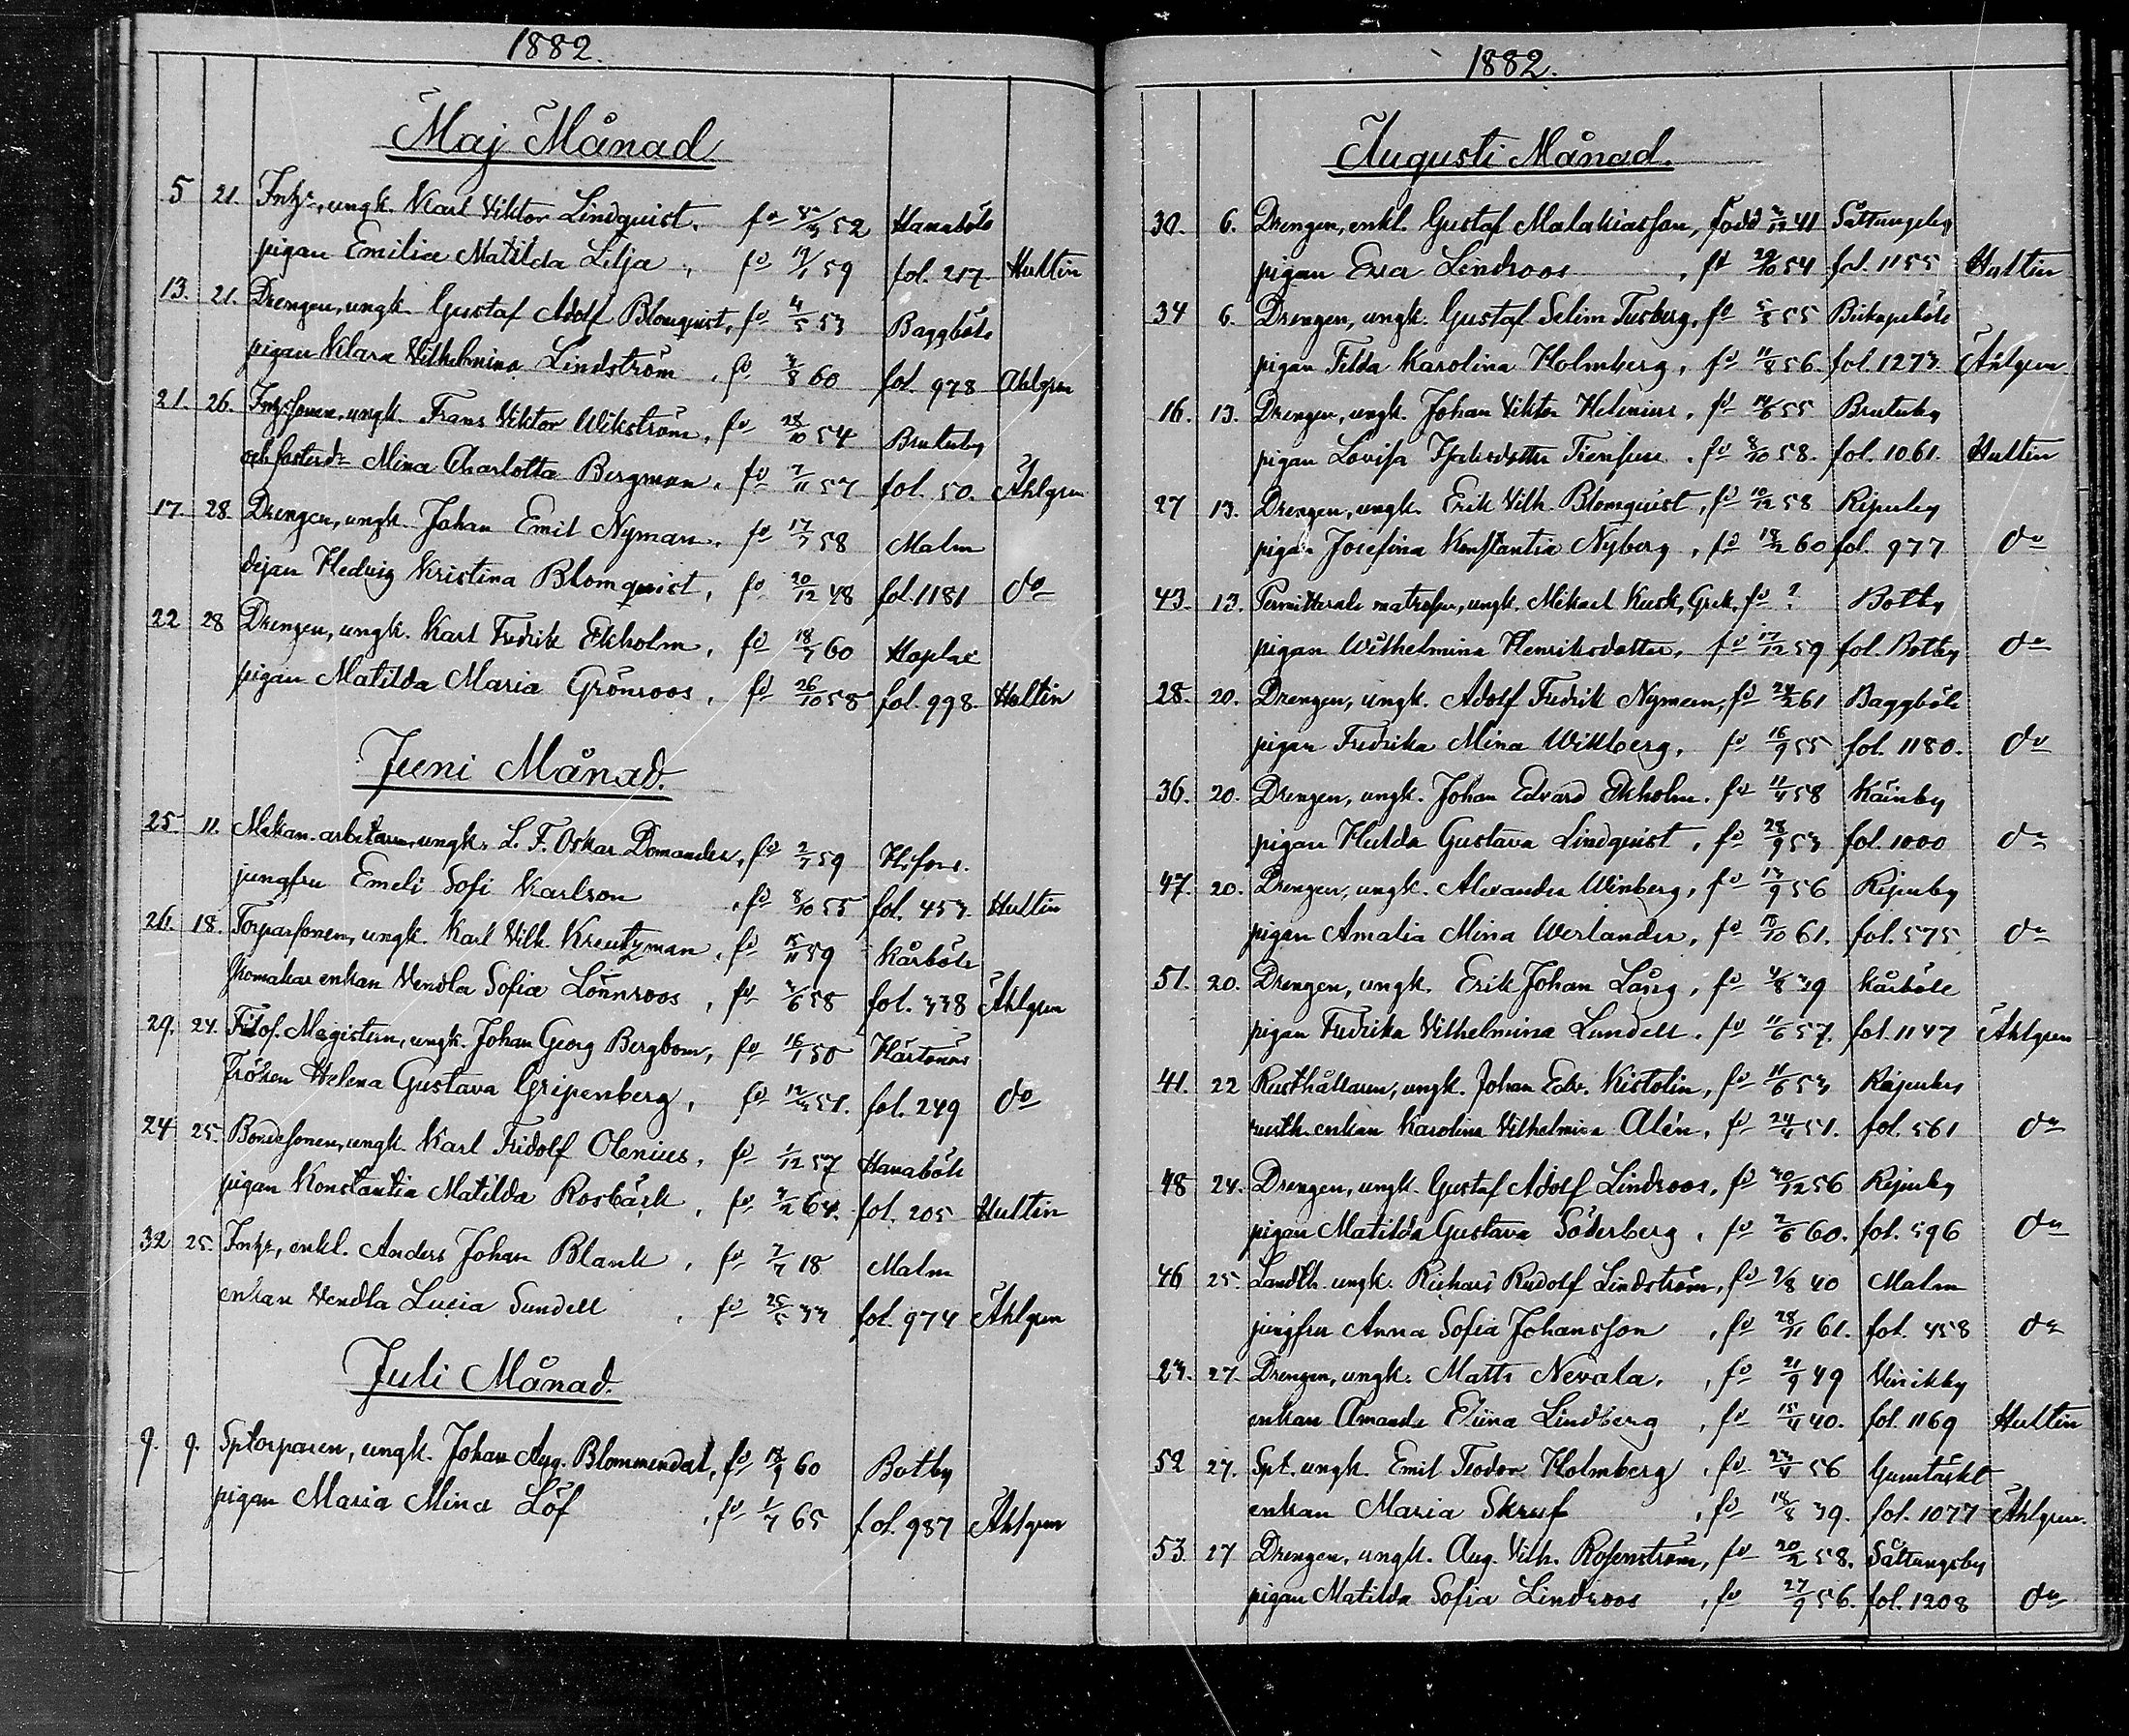 1882.
Maj Månad
5 21. Inhs, ungk. Karl Viktor Lindquist, fö 52 Hanaböle
pigan Emilia Matilda Lilja, fö 59 fol. 217. Hultin
13. 21. Drengen, ungk. Gustaf Adolf Blomquist, fö 4/5 53 Baggböle
pigan Klara Vilhelmina Lindström, fö 3/8 60 fol. 978 Ahlgren
21. 26. Inhssonen, ungk. Frans Viktor Wikström, fö 28/10 54 Brutuby
och fosterd: Mina Charlotta Bergman, fö 7/11 57 fol. 50. Åhlgren
17. 28. Drengen, ungk. Johan Emil Nyman, fö 17/7 58 Malm
dejan Hedvig Kristina Blomquist, fö 20/12 48 fol. 1181 do
22 28 Drengen, ungk. Karl Fredrik Ekholm, fö 18/7 60 Hoplax
pigan Matilda Maria Grönroos, fö 26/10 58 fol. 998. Hultin
Juni Månad.
25. 11. Mekan. arbetaren, ungk. L. F. Oskar Domander, fö 2/7 59 H:fors.
jungfru Emeli Sofi Karlson, fö 8/10 55 fol. 453 Hultin
26. 18. Torparsonen, ungk. Karl Vilh. Kreutzman, fö 59 Kårböle
skomakar enkan Vendla Sofia Lönnroos, fö 3/6 58 fol. 338 Åhlgren
29. 24. Filos. Magistern, ungk. Johan Georg Bergbom, fö 16/1 50 Hertonäs
Fröken Helena Gustava Gripenberg, fö 12/3 51. fol. 249 do
24 25. Bondesonen, ungk. Karl Fridolf Olenius, fö 1/12 57 Hanaböle
pigan Konstantia Matilda Rosbäck, fö 64. fol. 205 Hultin
32 25. Inhs, enkl. Anders Johan Blank, fö 7/7 18 Malm
enkan Vendla Lucia Sundell, fö 25/5 33 fol. 974 Åhlgren
Juli Månad.
9. 9. Sptorparen, ungk. Johan Aug. Blommendal, fö 18/9 60 Botby
pigan Maria Mina Löf, fö 1/7 65 fol. 987 Åhlgren
1882.
Augusti Månad.
30. 6. Drengen, enkl. Gustaf Malakiasson, född 3/12 41 Sottungsby
pigan Eva Lindroos, fö 29/10 54 fol. 1155 Hultin
34 6. Drengen, ungk. Gustaf Selim Tusberg, fö 5/8 55 Biskopsböle
pigan Tilda Karolina Holmberg, fö 11/8 56. fol. 1273. Åhlgren
16. 13. Drengen, ungk. Johan Viktor Helenius, fö 14/6 55 Brutuby
pigan Lovisa Isaksdotter, fö 8/10 58. fol. 1061. Hultin
27 13. Drengen, ungk. Erik Vilh. Blomquist, fö 10/12 58 Ripuby
pigan Josefina Konstantia Nyberg, fö 60 fol. 977 do
43. 13. Permitterade matrosen, ungk. Mikael Kuck, Grek. fö ? Botby
pigan Wilhelmina Henriksdotter, fö 17/12 59 fol. Botby do
28. 20. Drengen, ungk. Adolf Fredrik Nyman, fö 61 Baggböle
pigan Fredrika Mina Wikberg, fö 16/9 55 fol. 1180. do
36. 20. Drengen, ungk. Johan Edvard Ekholm, fö 11/4 58 Käinby
pigan Hulda Gustava Lindquist, fö 28/9 53 fol. 1000 do
47. 20. Drengen, ungk. Alexander Winberg, fö 13/9 56 Ripuby
pigan Amalia Mina Werlander, fö 61. fol. 575 do
51. 20. Drengen, ungk. Erik Johan Lång, fö 4/8 39 Kårböle
pigan Fredrika Vilhelmina Lundell, fö 11/6 57. fol. 1147 Åhlgren
41. 22 Rusthållaren, ungk. Johan Edv. Kistolin, fö 11/6 53 Ripuby
rusth. enkan Karolina Vilhelmina Alén, fö 51. fol. 561 do
48 24. Drengen, ungk. Gustaf Adolf Lindroos, fö 30/12 56 Ripuby
pigan Matilda Gustava Söderberg, fö 2/6 60. fol. 596 do
46 25. Landth. ungk. Richard Rudolf Lindström, fö 40 Malm
jungfru Anna Sofia Johansson, fö 28/11 61. fol. 458 do
23. 27. Drengen, ungk. Matts Nevala, fö 21/9 49 Vinikby
enkan Amanda Elina Lindberg, fö 40. fol. 1169 Hultin
52 27. Spt. ungk. Emil Teodor Holmberg, fö 56 Gumtäckt
enkan Maria Skruf, fö 18/8 39. fol. 1077 Åhlgren.
53. 27 Drengen, ungk. Aug. Vilh. Rosenström, fö 20/2 58. Sottungsby
pigan Matilda Sofia Lindroos, fö 27/9 56. fol. 1208 do